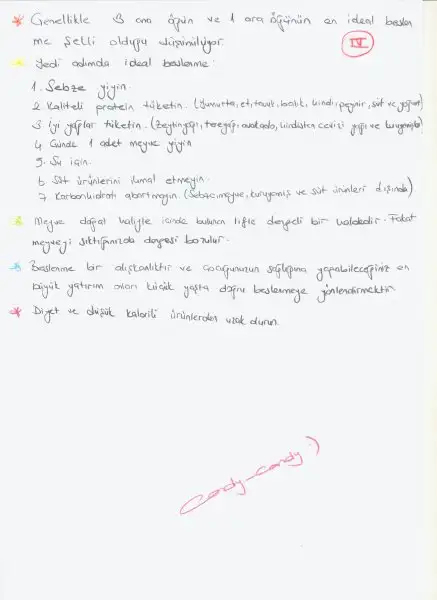 * Genellikle 3 ana öğün ve 1 ara öğünün en ideal beslen
me şekli olduğu düşünülüyor. IV
* Yedi adımda ideal beslenme:
1. Sebze yiyin.
2 Kaliteli protein tüketin. (Yumurta, et, tavuk, balık, hindi, peynir, süt ve yoğurt)
3 İyi yağlar tüketin. (Zeytinyağı, tereyağı, avokado, hindistan cevizi yağı ve kuruyemişler)
4 Günde 1 adet meyve yiyin
5. Su için.
6 Süt ürünlerini ihmal etmeyin.
7 Karbonhidratı abartmayın. (Sebze, meyve, kuruyemiş ve süt ürünleri dışında)
* Meyve doğal haliyle içinde bulunan lifle dengeli bir haldedir. Fakat
meyveyi sıktığınızda dengesi bozulur.
* Beslenme bir alışkanlıktır ve çocuğunuzun sağlığına yapabileceğiniz en
büyük yatırım onları küçük yaşta doğru beslenmeye yönlendirmektir.
* Diyet ve düşük kalorili ürünlerden uzak durun.
Candy-candy :)